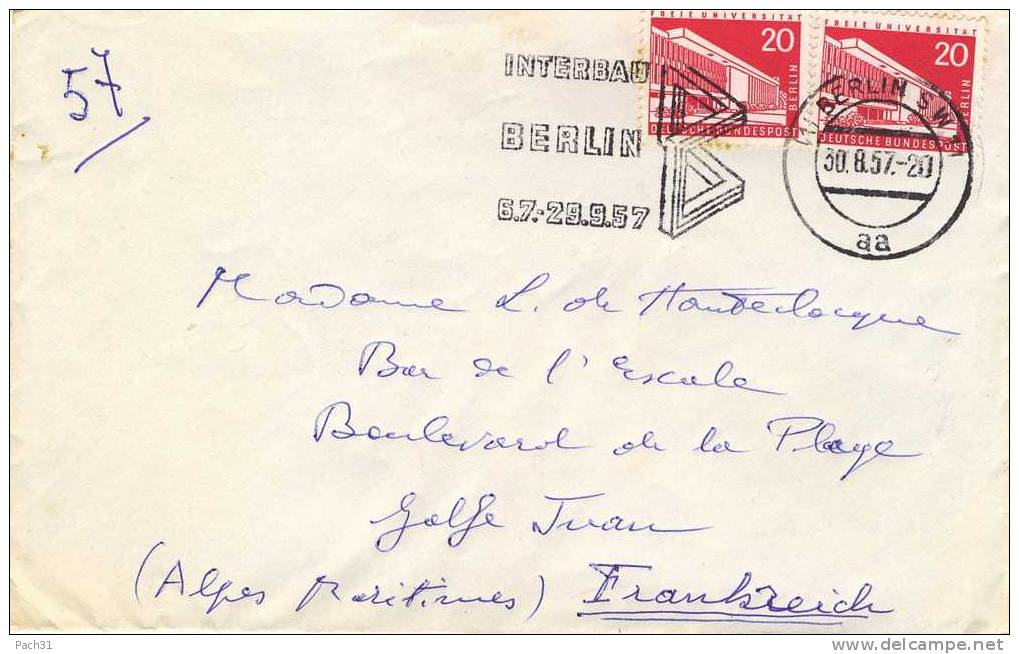 57
INTERBAU
BERLIN
6.7.-29.9.57
FREIE UNIVERSITÄT
20
BERLIN
DEUTSCHE BUNDESPOST
FREIE UNIVERSITÄT
20
BERLIN
DEUTSCHE BUNDESPOST
BERLIN SW 11
30.8.57.-20
aa
Madame L. de Hauteclocque
Bar de l'Escale
Boulevard de la Plage
Golfe Juan
(Alpes Maritimes) Frankreich
Pach31
delcampe.net